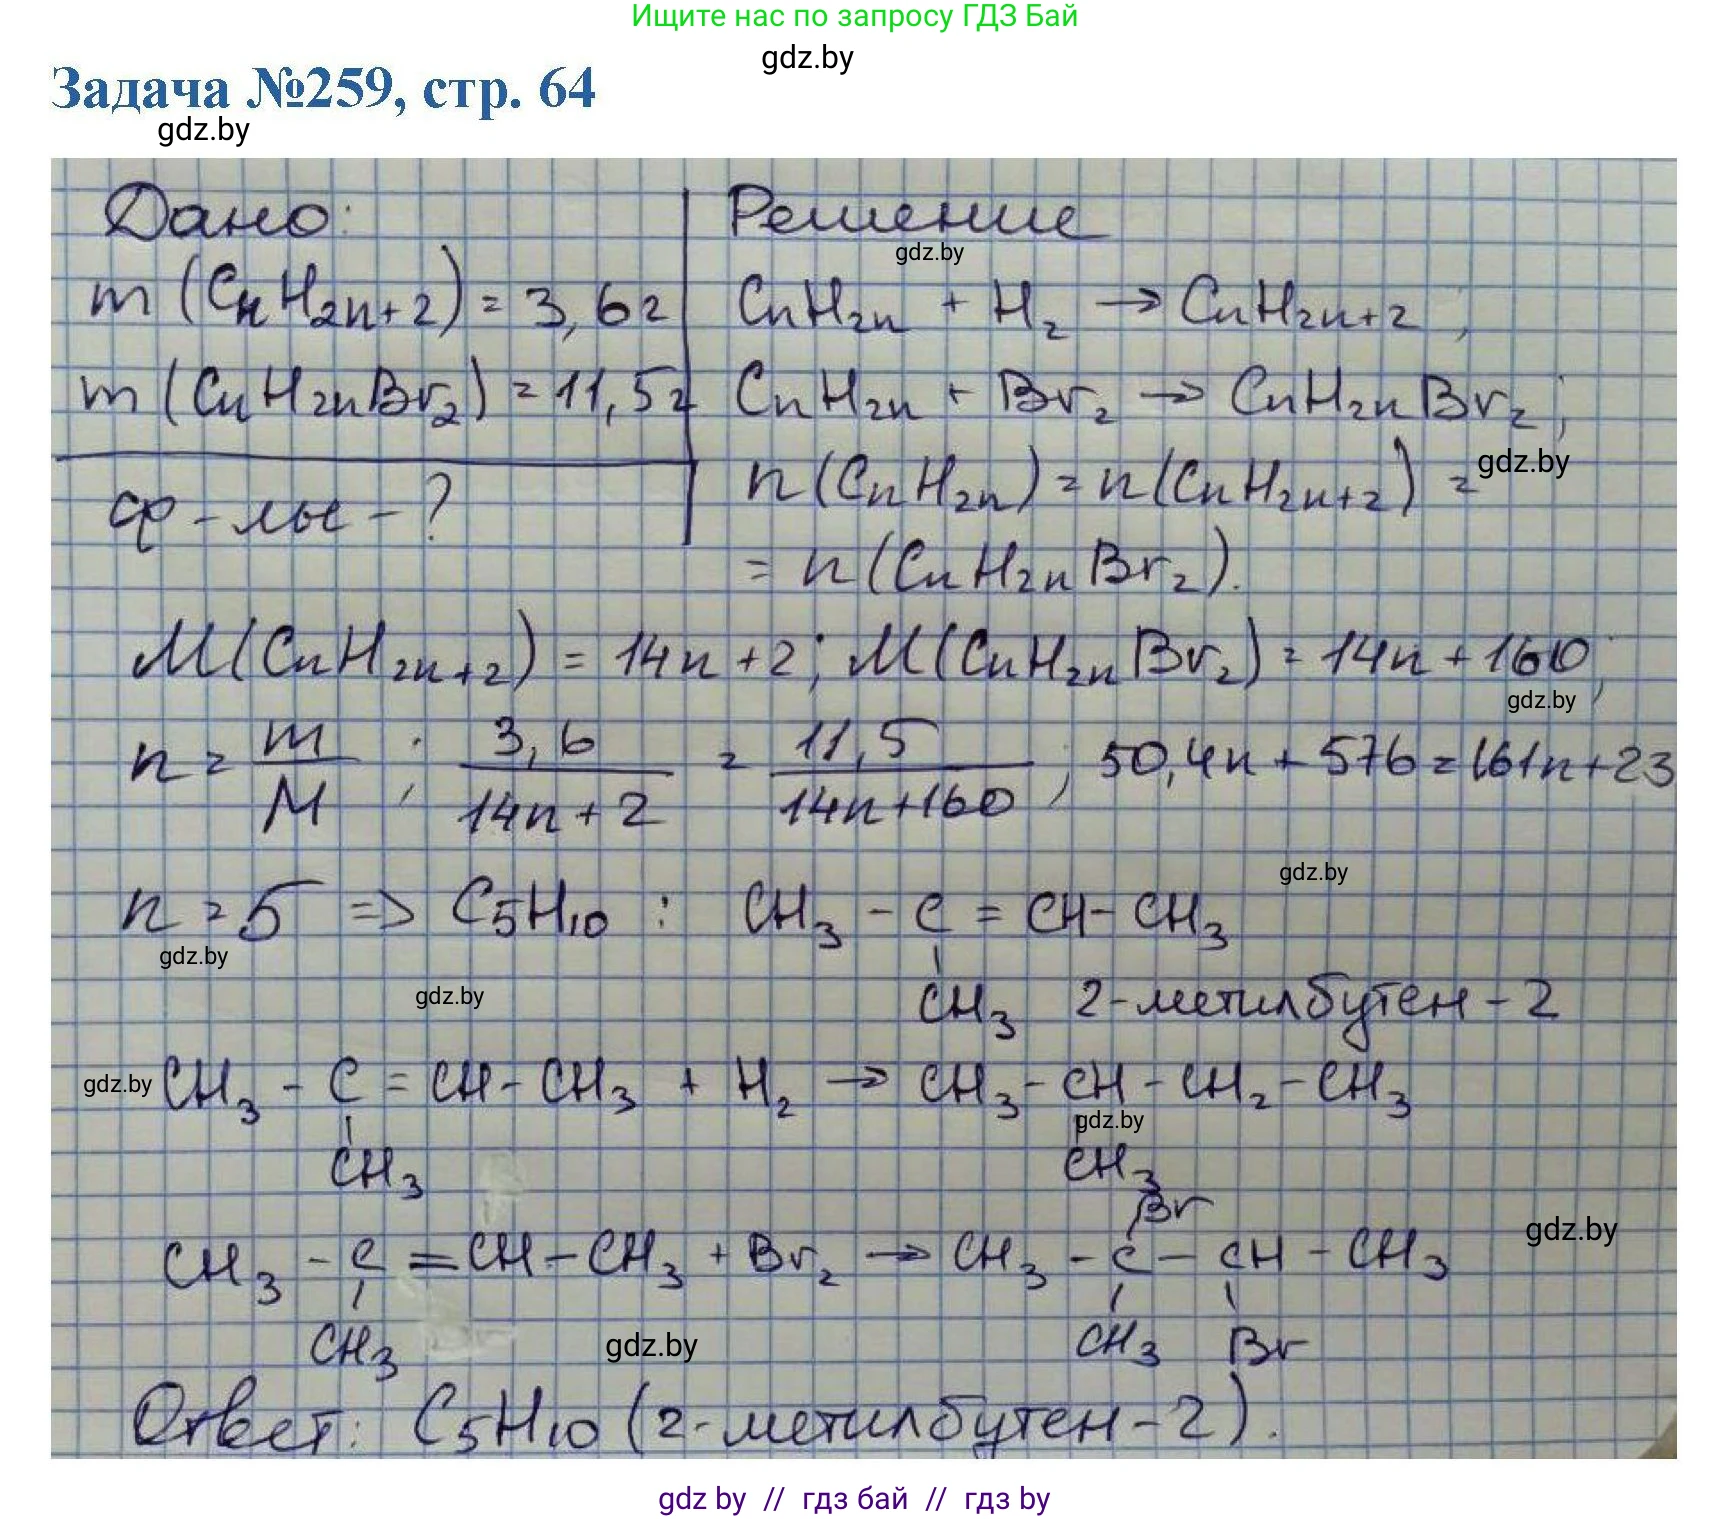 Ищите нас по запросу ГДЗ Бай
gdz.by
Задача №259, стр. 64
gdz.by
Дано:
m (CnH2n+2) = 3,6г
m (CnH2nBr2) = 11,5г
ф-лы - ?
Решение
gdz.by
CnH2n + H2 → CnH2n+2;
CnH2n + Br2 → CnH2nBr2;
gdz.by
n(CnH2n) = n(CnH2n+2) =
= n(CnH2nBr2).
M(CnH2n+2) = 14n+2; M(CnH2nBr2) = 14n+160;
gdz.by
n = m/M; 3,6/14n+2 = 11,5/14n+160; 50,4n+576=161n+23
gdz.by
n = 5 => C5H10 : CH3 - C = CH - CH3
gdz.by
gdz.by
CH3 2-метилбутен-2
gdz.by CH3 - C = CH - CH3 + H2 → CH3 - CH - CH2 - CH3
gdz.by
CH3 CH3
Br
gdz.by
CH3 - C = CH - CH3 + Br2 → CH3 - C - CH - CH3
CH3 gdz.by CH3 Br
Ответ: C5H10 (2-метилбутен-2).
gdz by // гдз бай // гдз by